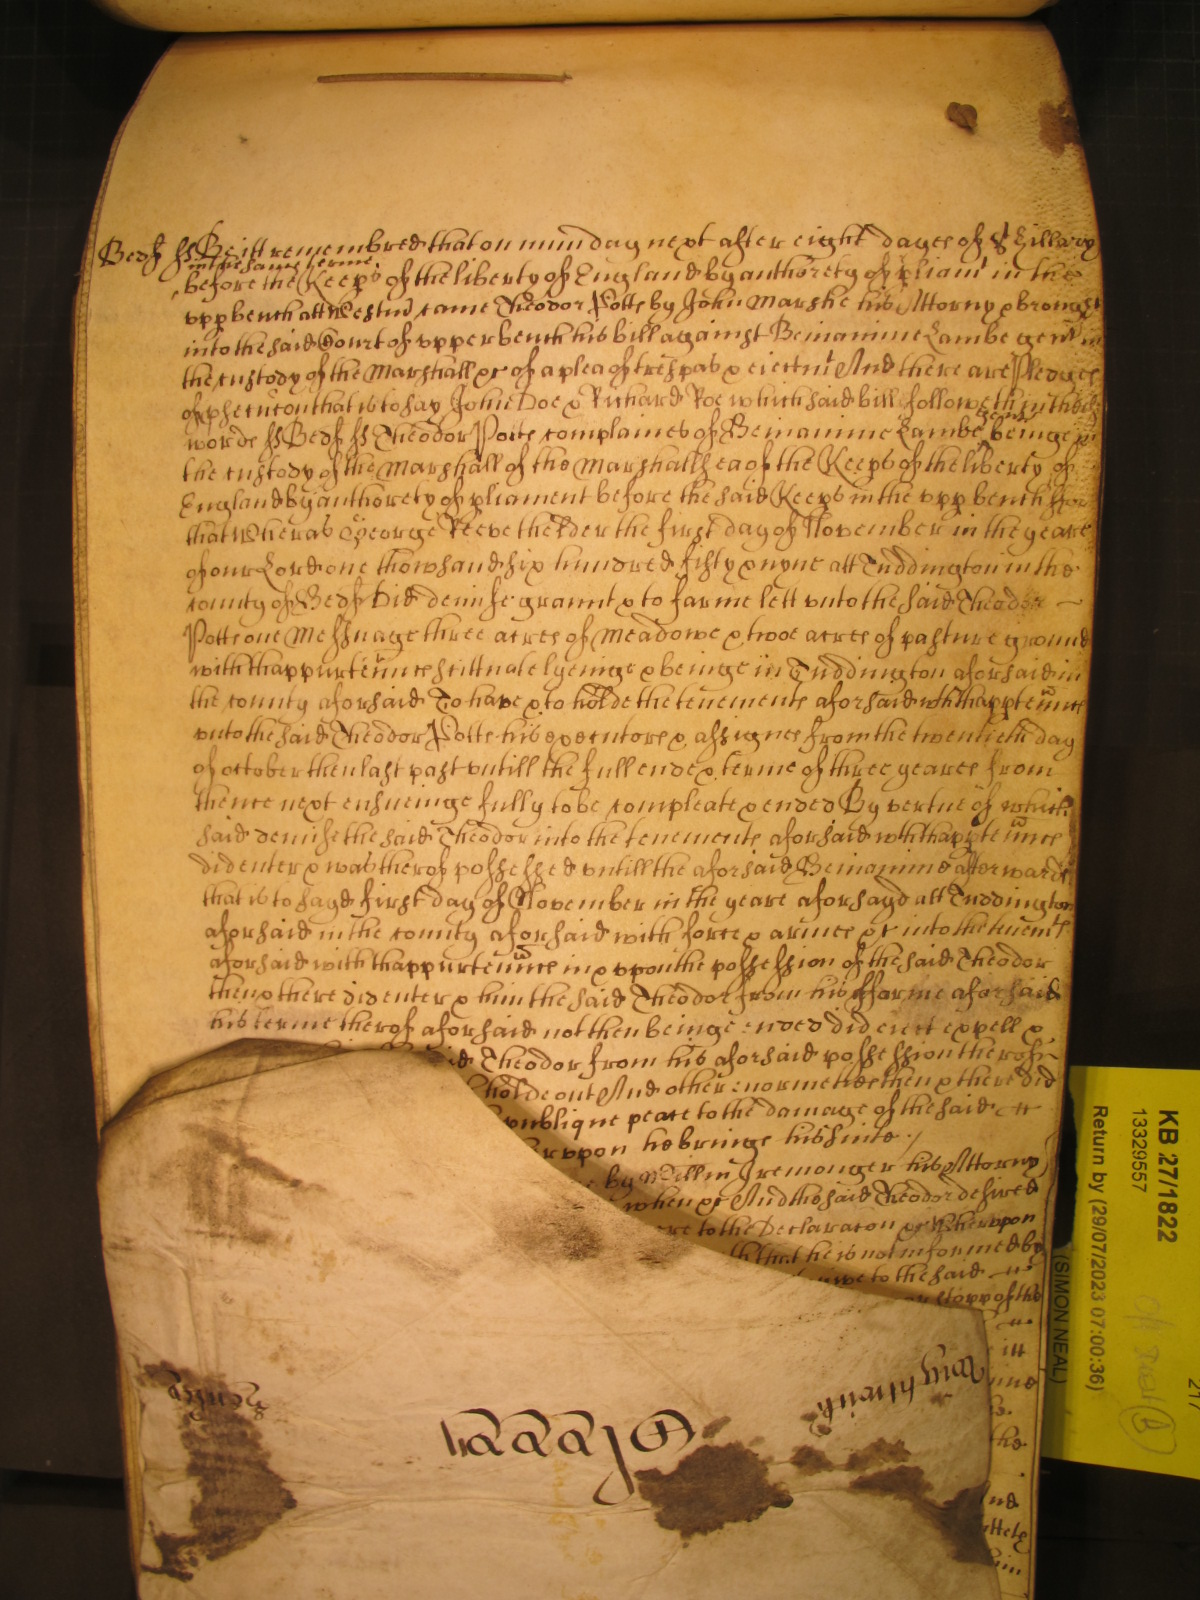 Bedf ss Be itt remembred that on munday next after eight dayes of St Hillary
in the same terme
before the Keeps of the liberty of England by authorety of pliamt in the
upp bench att Westmr came Theodor Potts by John Marshe his Attorny & brought
into the said Court of upper bench his bill against Beniamine Lambe gent in
the custody of the Marshall &c of a plea of trespas & eiectmt And there are Pledges
of psecucon that is to say John Doe & Richard Roe which said bill followeth in these
words ss Bedf ss Theodor Potts complaines of Beniamine Lambe gent beinge in
the custody of the Marshall of the Marshallsea of the Keeps of the liberty of
England by authorety of pliament before the said Keeps in the upp bench ffor
that Wheras George Reeve the elder the first day of November in the yeare
of our Lord one thowsand six hundred fifty & nyne att Tuddington in the
county of Bedf Did demise graunt & to farme lett unto the said Theodor
Potts one Messuage three acres of meadowe & twoe acres of pasture ground
with thappurtennces scittuate lyeinge & beinge in Tuddington aforsaid in
the county aforsaid To have & to holde the tenements aforsaid wth thapptennces
unto the said Theodor Potts his executors & assignes from the twentieth day
of october then last past untill the full ende & terme of three yeares from
thence next ensueinge fully to be compleate & ended By vertue of which
said demise the said Theodor into the tenements aforsaid wth thapptennces
did enter & was therof possessed untill the aforsaid Beniamine afterwards
that is to saye first day of November in the yeare aforsayd att Tuddington
aforsaid in the county aforsaid with force & armes &c into the tenemts
aforsaid with thappurtennces in & upon the possession of the said Theodor
then & there did enter & him the said Theodor from his fforme aforsaid
his terme therof aforsaid not then beinge ended did eiect expell &
Theodor from his aforsaid possession therof
holde out And other enormeties then & there did
publique peace to the damage of the said
upon he bringe his suite
by Willm Iremonger his Attorny
when &c And the said Theodor desired
to the Declaracon &c Wherupon
that he is not informed by
to the said
of the
itt
the
KB 27/1822
13329557
Return by (29/07/2023 07:00:36)
(SIMON NEAL)
217